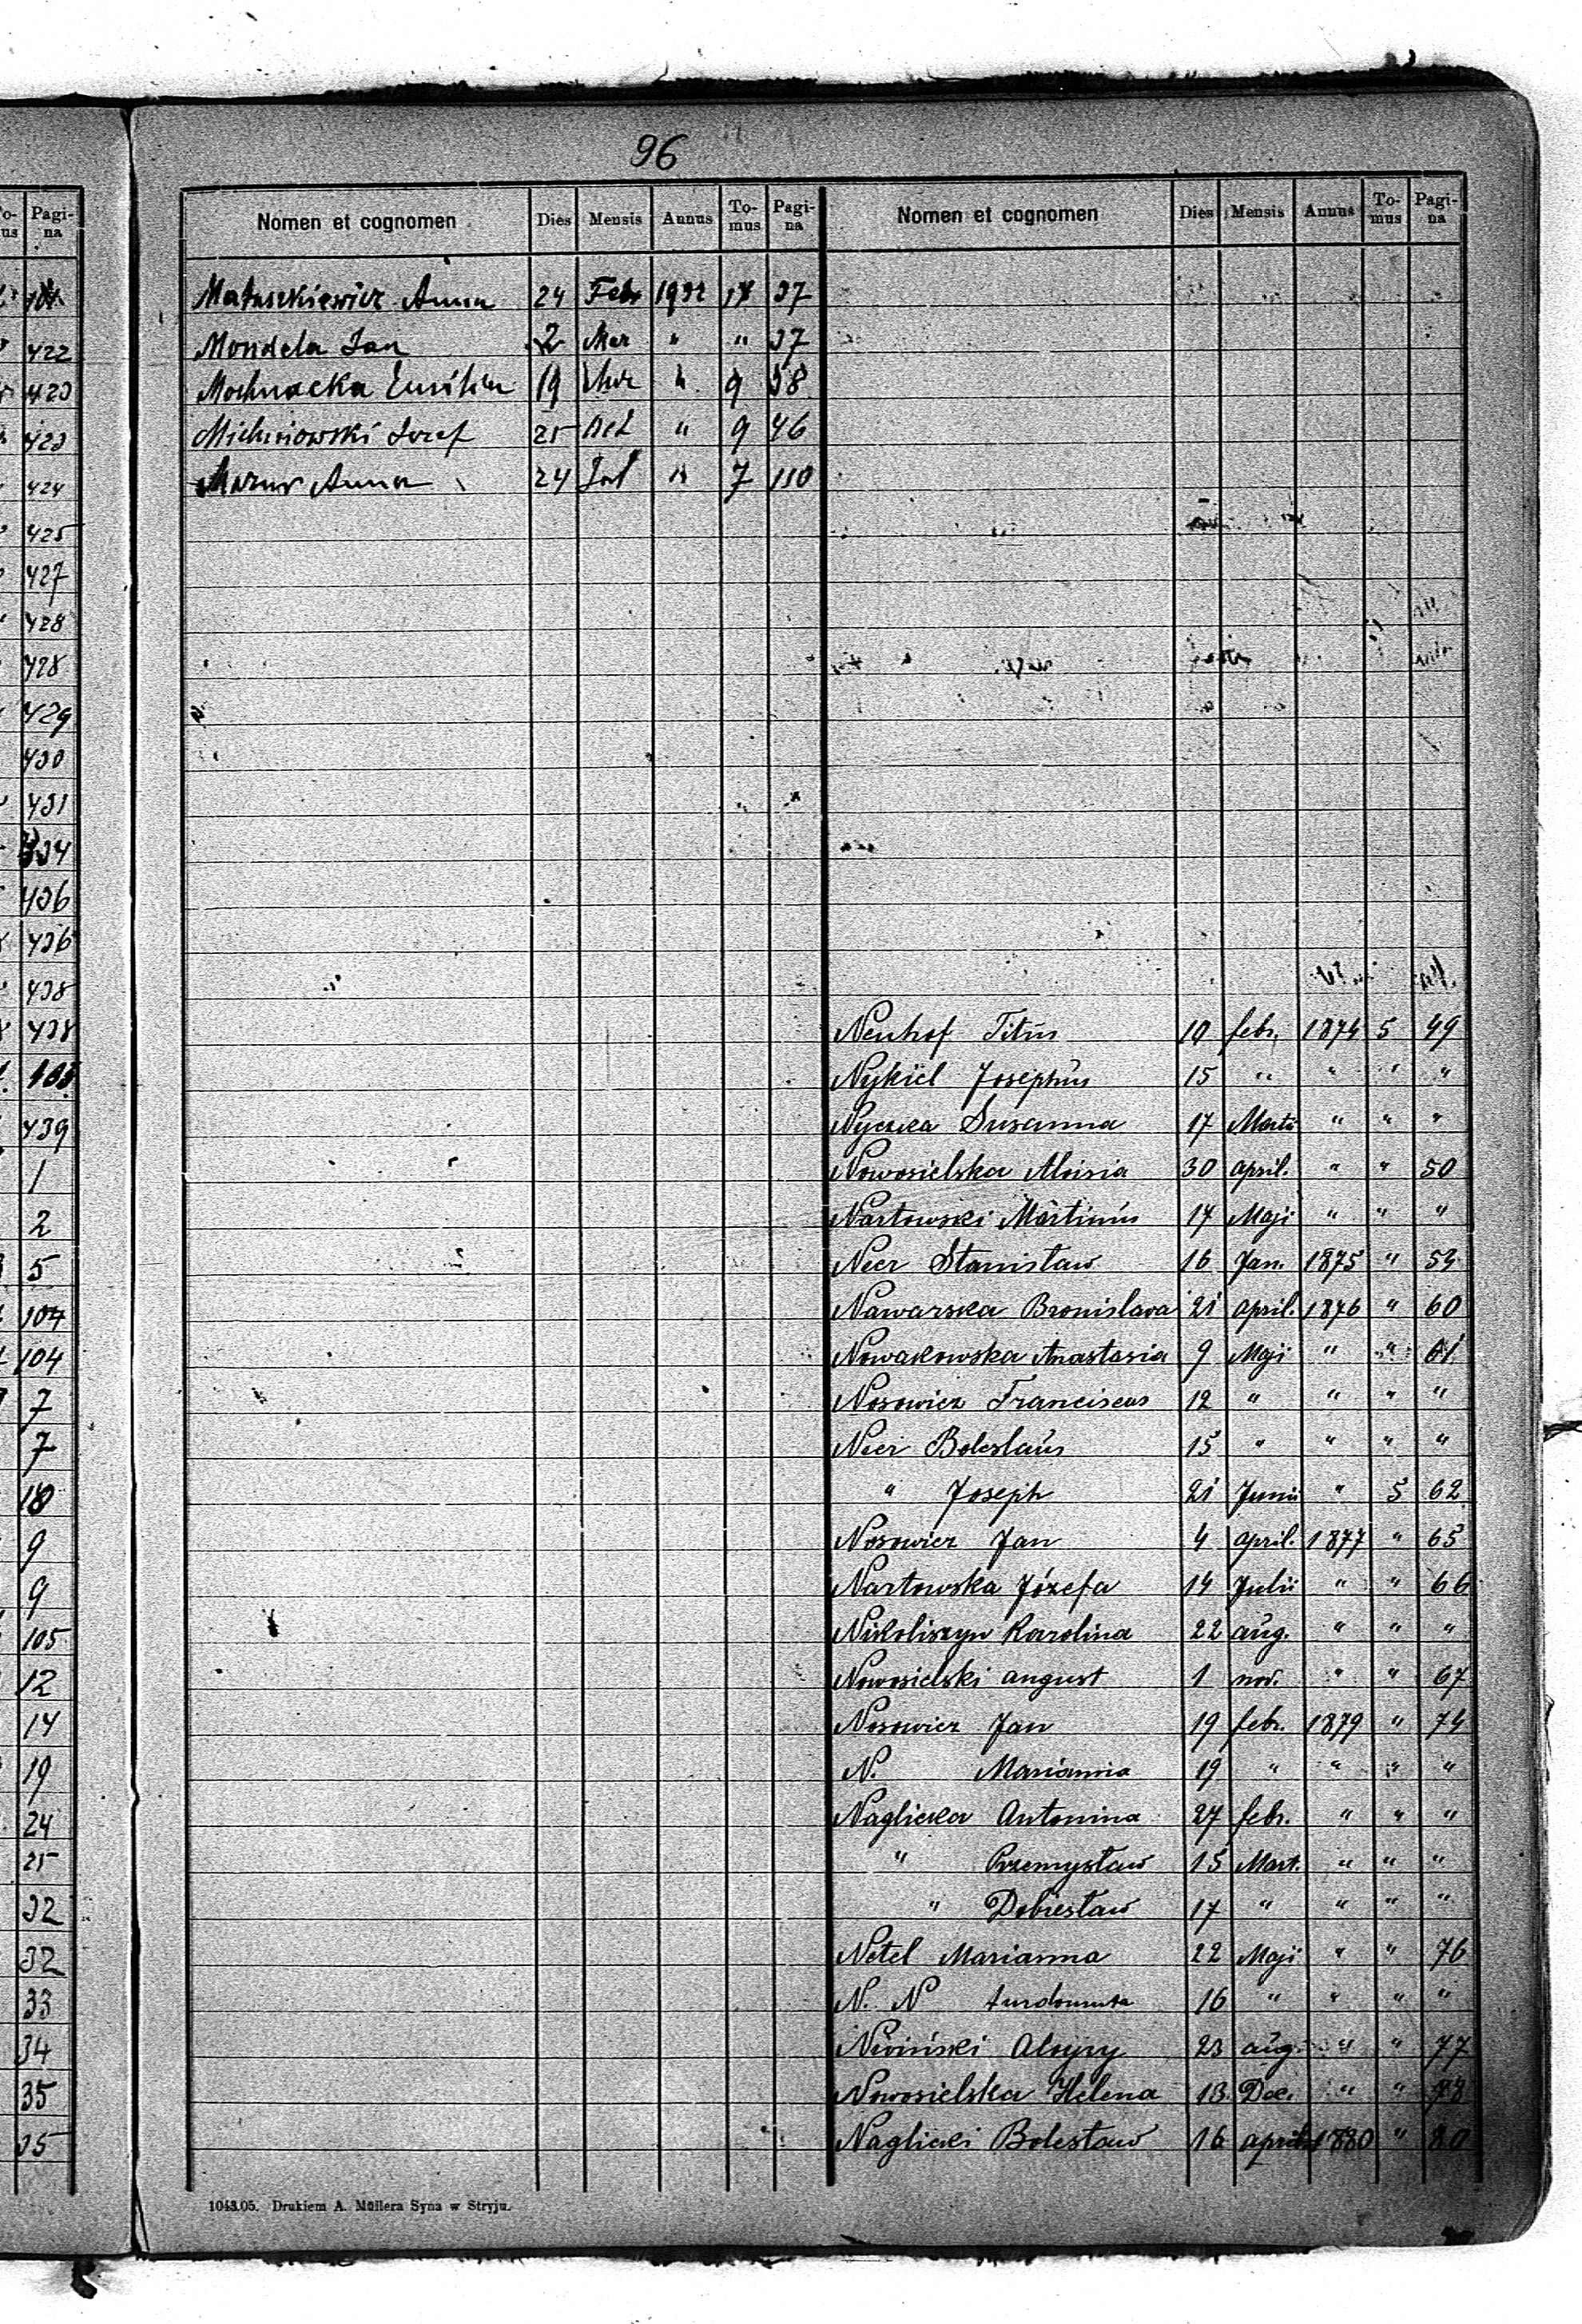 96
Nomen et cognomen Dies Mensis Annus To-mus Pagi-na
Matuszkiewicz Anna 24 Febr 1932 17 37
Mondela Jan 2 Mar " " 37
Mochnacka 19 " 9 58
Michniowski Józef 25 Oct " 9 46
Anna 24 Jul " 7 110
1043.05. Drukiem A. Müllera Syna w Stryju.
Nomen et cognomen Dies Mensis Annus To-mus Pagi-na
Neuhof Titus 10 febr. 1874 5 49
Nykiel Josephus 15 " " " "
Nyczka Susanna 17 Martii " " "
Nowosielska Aloisia 30 april. " " 50
Nartowski Martinus 17 Maji " " "
Neer Stanisław 16 Jan. 1875 " 54
Nawarska Bronislava 21 april. 1876 " 60
Nowakowska Anastasia 9 Maji " " 61
Nosowicz Franciscus 12 " " " "
Neer Boleslaus 15 " " " "
" Joseph 21 Junii " 5 62
Nosowicz Jan 4 april. 1877 " 65
Nartowska Józefa 14 Julii " " 66
Nikoliszyn Karolina 22 aug. " " "
Nowosielski august 1 nov. " " 67
Nosowicz Jan 19 febr. 1879 " 74
N. Marianna 19 " " " "
Naglicka Antonina 27 febr. " " "
" Przemysław 15 Mart. " " "
" Dobiesław 17 " " " "
Netel Marianna 22 Maji " " 76
N. N 16 " " " "
Niwiński Alojzy 23 aug. " " 77
Nowosielska Helena 13 Dec. " " 78
Naglicki Bolesław 16 april. 1880 " 80
Pagi-na
422
423
423
424
425
427
428
428
429
430
431
434
436
436
438
438
105
439
1
2
5
104
104
7
7
18
9
9
105
12
14
19
24
25
32
32
33
34
35
35